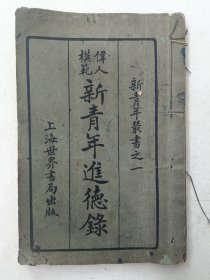 新青年叢書之一
偉人
模範
新青年進德錄
上海世界書局出版